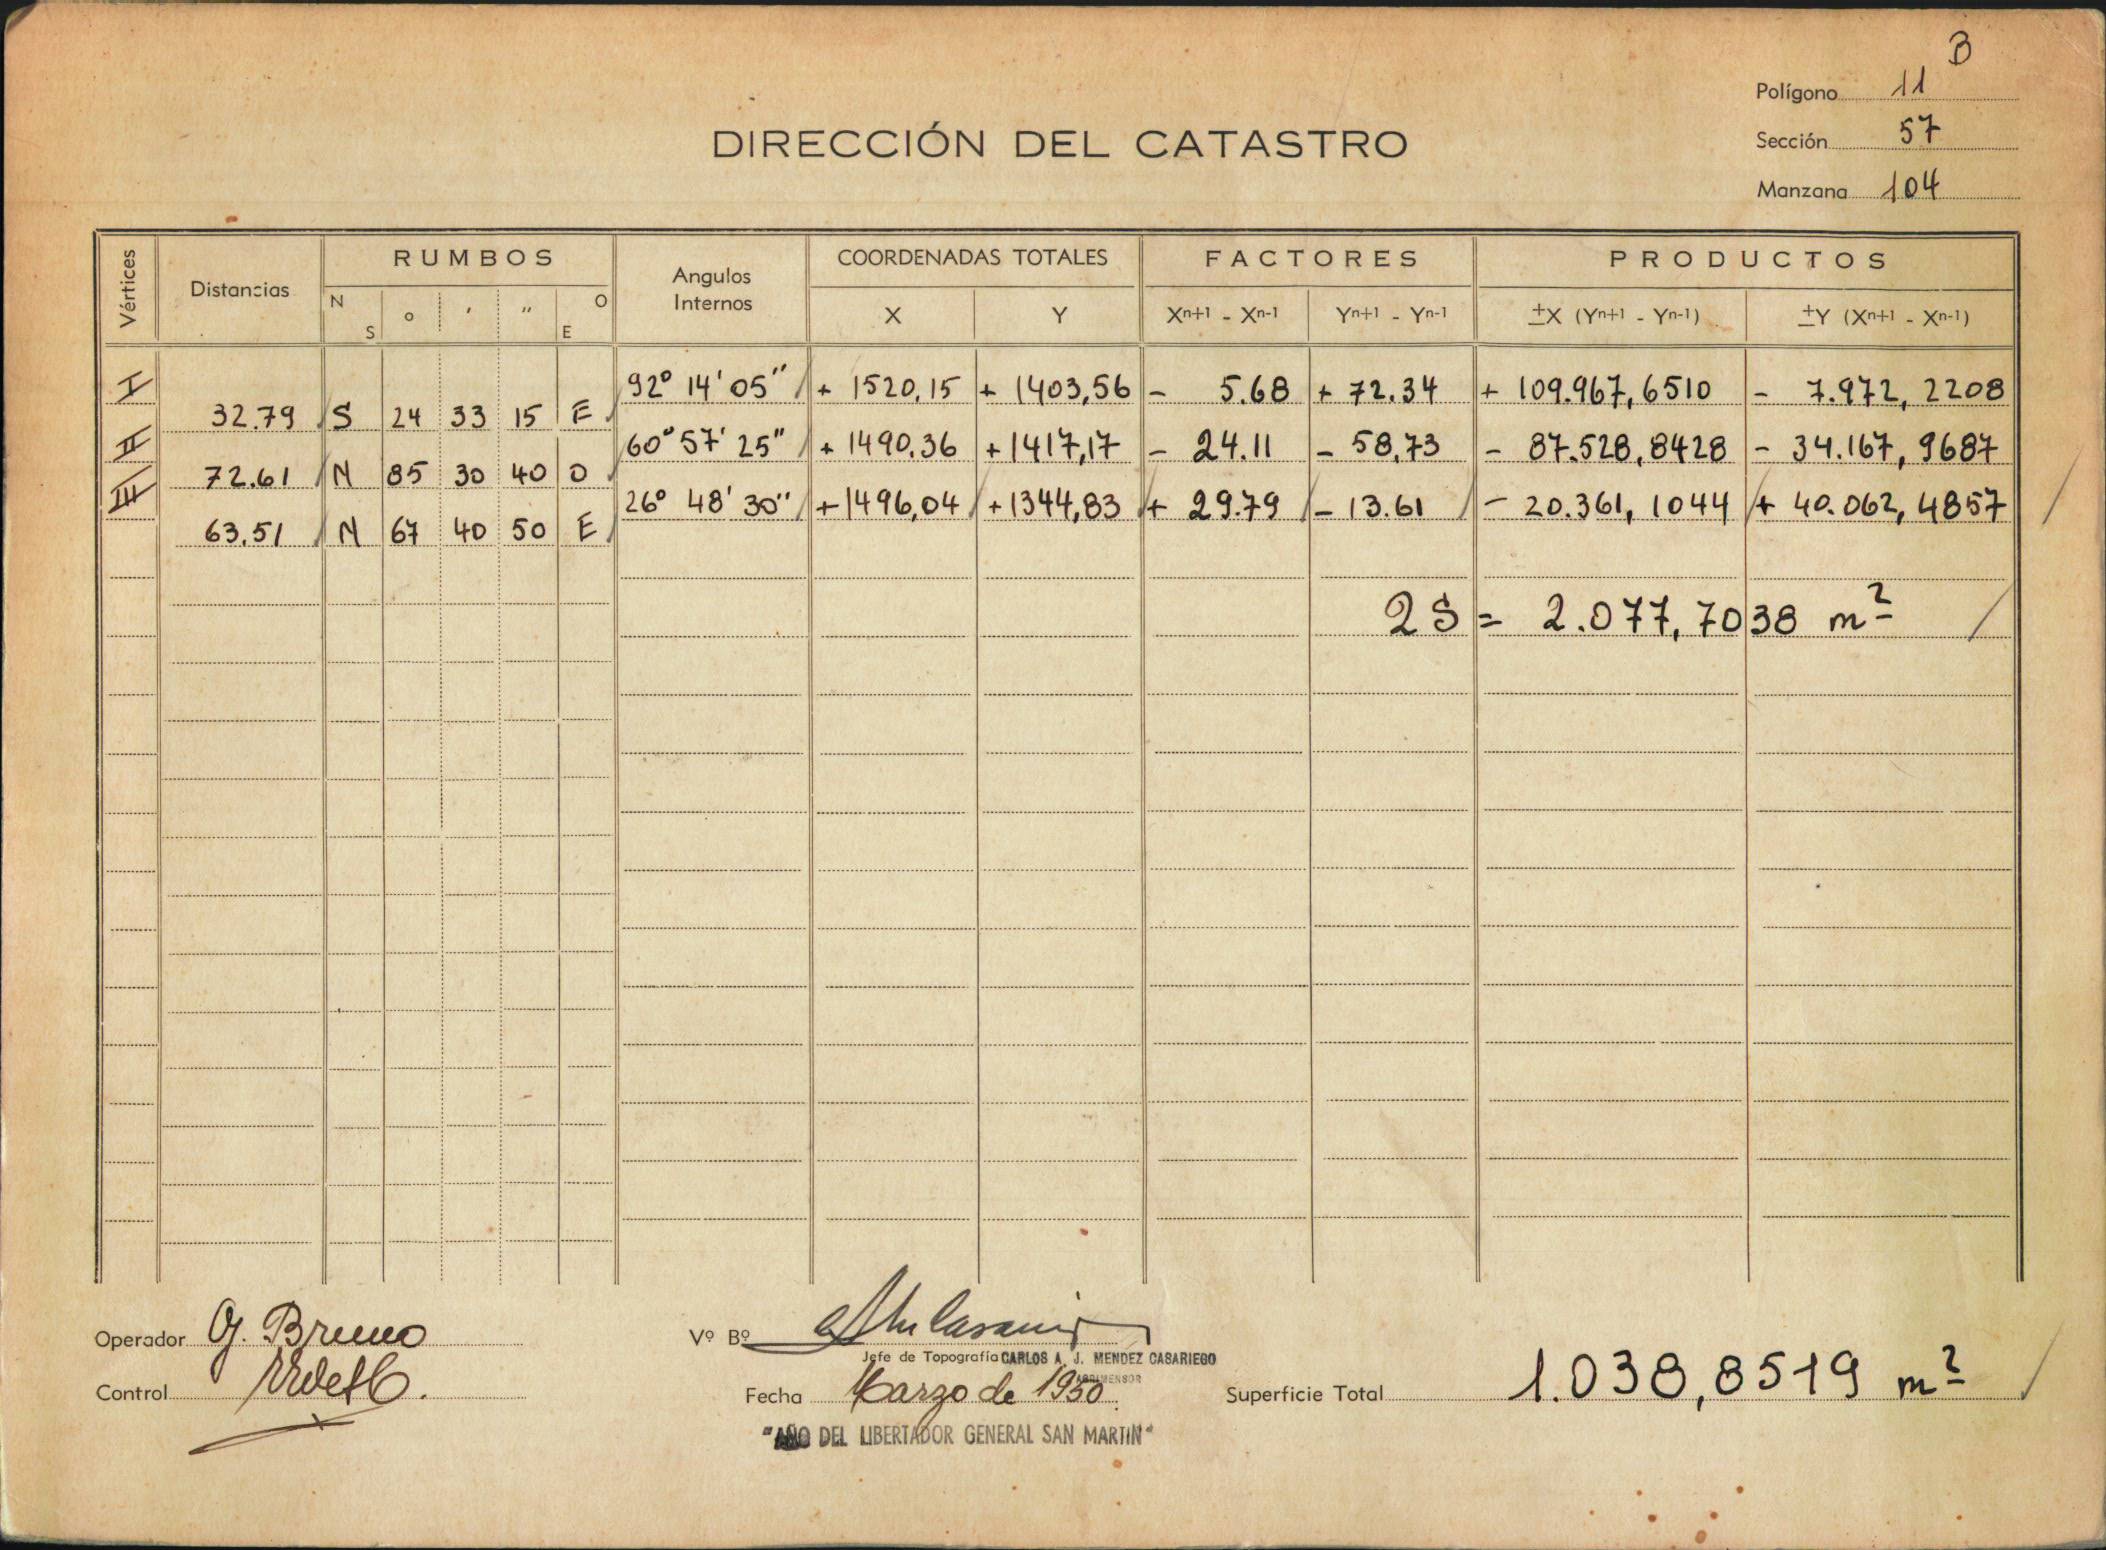 B
Polígono 11
DIRECCIÓN DEL CATASTRO
Sección 57
Manzana 104
Vértices Distancias RUMBOS Angulos Internos COORDENADAS TOTALES FACTORES PRODUCTOS
N S ° ' " O E X Y Xn+1 - Xn-1 Yn+1 - Yn-1 ±X (Yn+1 - Yn-1) ±Y (Xn+1 - Xn-1)
I 92° 14' 05" + 1520,15 + 1403,56 - 5.68 + 72.34 + 109.967,6510 - 7.972,2208
32.79 S 24 33 15 E
II 60° 57' 25" + 1490,36 + 1417,17 - 24.11 - 58,73 - 87.528,8428 - 34.167,9687
72.61 N 85 30 40 O
III 26° 48' 30" + 1496,04 + 1344,83 + 29.79 - 13.61 - 20.361,1044 + 40.062,4857
63.51 N 67 40 50 E
2S = 2.077,7038 m²
Operador G. Bruno
Vº Bº
Jefe de Topografía CARLOS A. J. MENDEZ CASARIEGO
AGRIMENSOR
Control
Fecha Marzo de 1950.
Superficie Total 1.038,8519 m²
"AÑO DEL LIBERTADOR GENERAL SAN MARTIN"